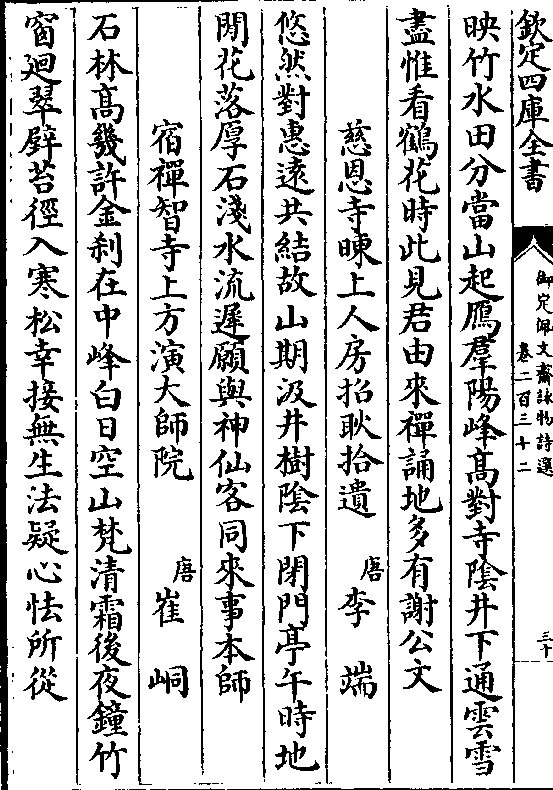 欽定四庫全書
御定佩文齋詠物詩選
卷二百三十二
三十
映竹水田分當山起鴈羣陽峰高對寺陰井下通雲雪
盡惟看鶴花時此見君由來禪誦地多有謝公文
慈恩寺暕上人房招耿拾遺
唐李端
悠然對惠遠共結故山期汲井樹陰下閉門亭午時地
閒花落厚石淺水流遲願與神仙客同來事本師
宿禪智寺上方演大師院
唐崔峒
石林高幾許金刹在中峰白日空山梵清霜後夜鐘竹
窗廻翠壁苔徑入寒松幸接無生法疑心怯所從